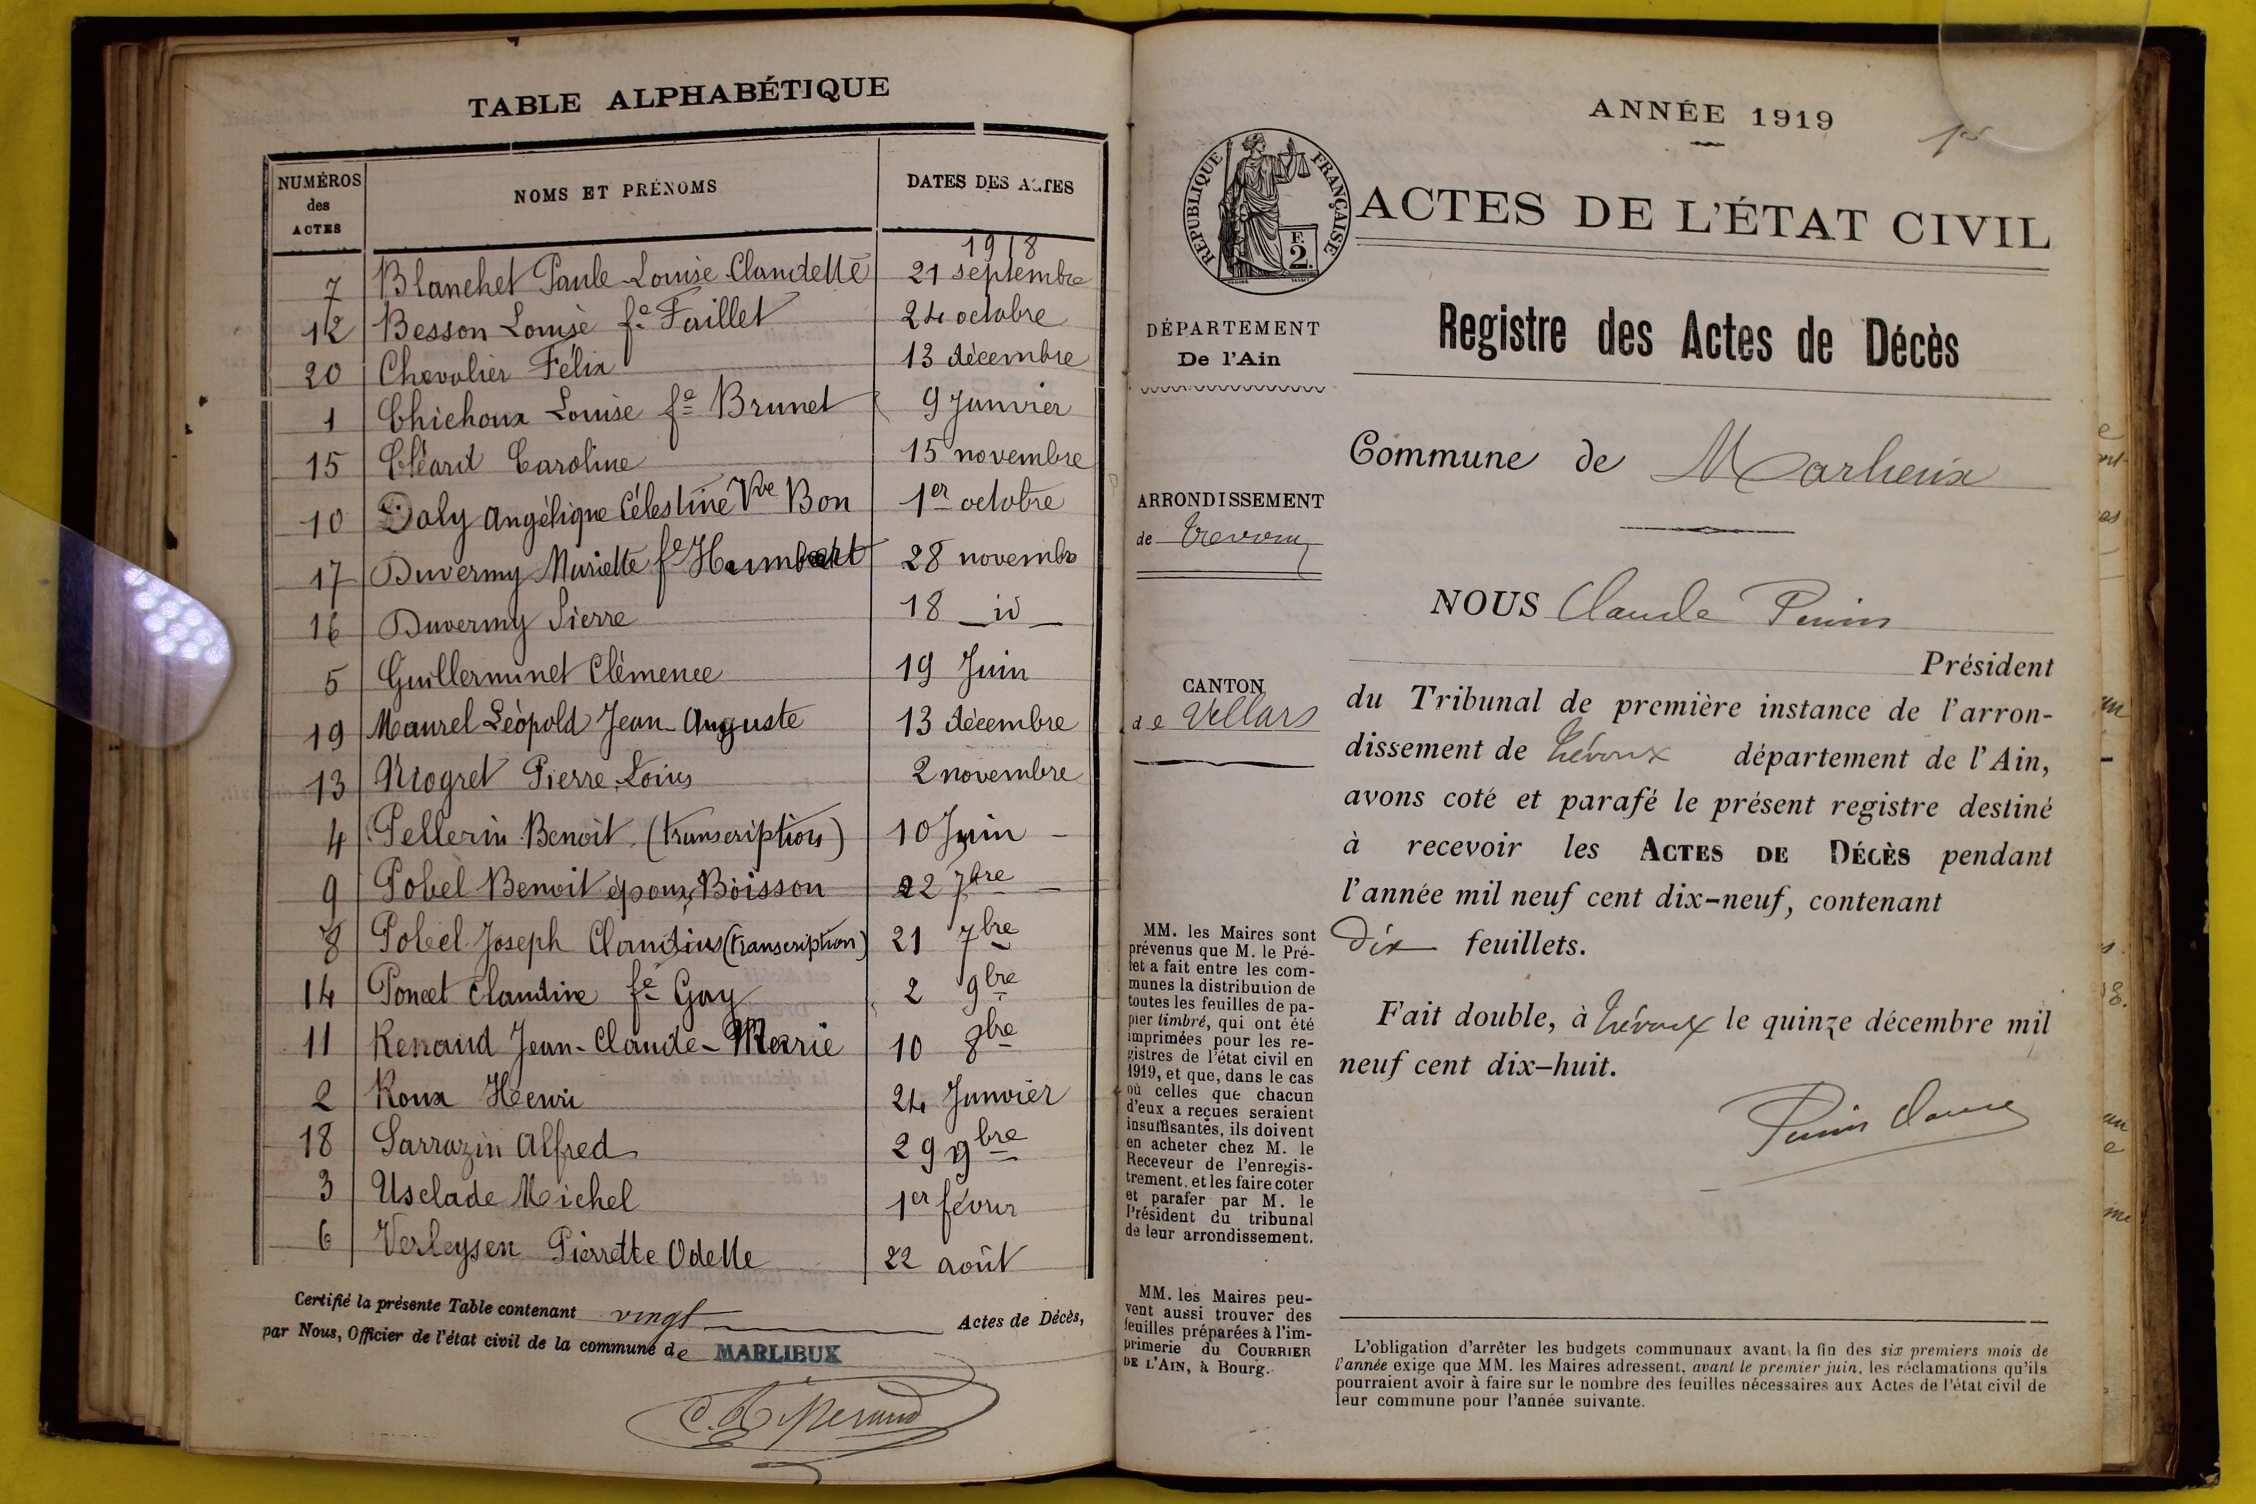 TABLE ALPHABÉTIQUE
NUMÉROS des ACTES
NOMS ET PRÉNOMS
DATES DES ACTES
1918
7 Blanchet Paule Louise Claudette 21 septembre
12 Besson Louise fe Faillet 24 octobre
20 Chevalier Félix 13 décembre
1 Chichoux Louise fe Brunet 9 Janvier
15 Cléard Caroline 15 novembre
10 Daly Angélique Célestine Vve Bon 1er octobre
17 Duvermy Mariette fe Humbert 28 novembre
16 Duvermy Pierre 18 id
5 Guillerminet Clémence 19 Juin
19 Maurel Léopold Jean Auguste 13 décembre
13 Niogret Pierre Louis 2 novembre
4 Pellerin Benoit (transcription) 10 Juin
9 Pobel Benoit époux Boisson 22 7bre
8 Pobel Joseph Claudius (transcription) 21 7bre
14 Poncet Claudine fe Gay 2 9bre
11 Renaud Jean-Claude-Marie 10 8bre
2 Roux Henri 24 Janvier
18 Sarrazin Alfred 29 9bre
3 Usclade Michel 1er février
6 Verleysen Pierrette Odette 22 août
Certifié la présente Table contenant vingt Actes de Décès,
par Nous, Officier de l'état civil de la commune de MARLIEUX
ANNÉE 1919
RÉPUBLIQUE FRANÇAISE
E
2.
ACTES DE L'ÉTAT CIVIL
DÉPARTEMENT
De l'Ain
Registre des Actes de Décès
Commune de Marlieux
ARRONDISSEMENT
de Trévoux
NOUS Claude Perrin
Président
CANTON
de Villars
du Tribunal de première instance de l'arron-
dissement de Trévoux département de l'Ain,
avons coté et parafé le présent registre destiné
à recevoir les ACTES DE DÉCÈS pendant
l'année mil neuf cent dix-neuf, contenant
dix feuillets.
Fait double, à Trévoux le quinze décembre mil
neuf cent dix-huit.
MM. les Maires sont
prévenus que M. le Pré-
fet a fait entre les com-
munes la distribution de
toutes les feuilles de pa-
pier timbré, qui ont été
imprimées pour les re-
gistres de l'état civil en
1919, et que, dans le cas
où celles que chacun
d'eux a reçues seraient
insuffisantes, ils doivent
en acheter chez M. le
Receveur de l'enregis-
trement, et les faire coter
et parafer par M. le
Président du tribunal
de leur arrondissement.
MM. les Maires peu-
vent aussi trouver des
feuilles préparées à l'im-
primerie du COURRIER
DE L'AIN, à Bourg.
L'obligation d'arrêter les budgets communaux avant la fin des six premiers mois de
l'année exige que MM. les Maires adressent, avant le premier juin, les réclamations qu'ils
pourraient avoir à faire sur le nombre des feuilles nécessaires aux Actes de l'état civil de
leur commune pour l'année suivante.